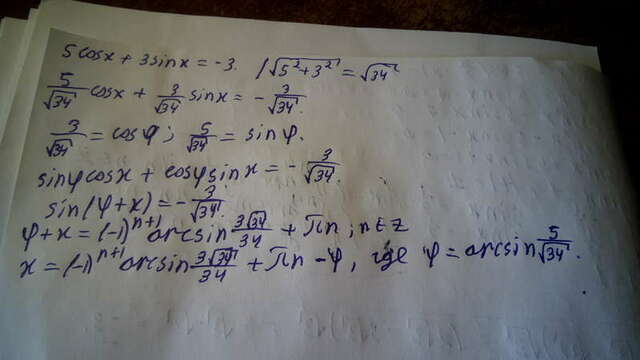 5cosx + 3sinx = -3. /√(5²+3²) = √34
5/√34 cosx + 3/√34 sinx = - 3/√34.
3/√34 = cosφ; 5/√34 = sinφ.
sinφcosx + cosφsinx = - 3/√34.
sin(φ+x) = - 3/√34.
φ+x = (-1)ⁿ⁺¹ arcsin 3√34/34 + πn; n∈z
x = (-1)ⁿ⁺¹ arcsin 3√34/34 + πn - φ, где φ = arcsin 5/√34.